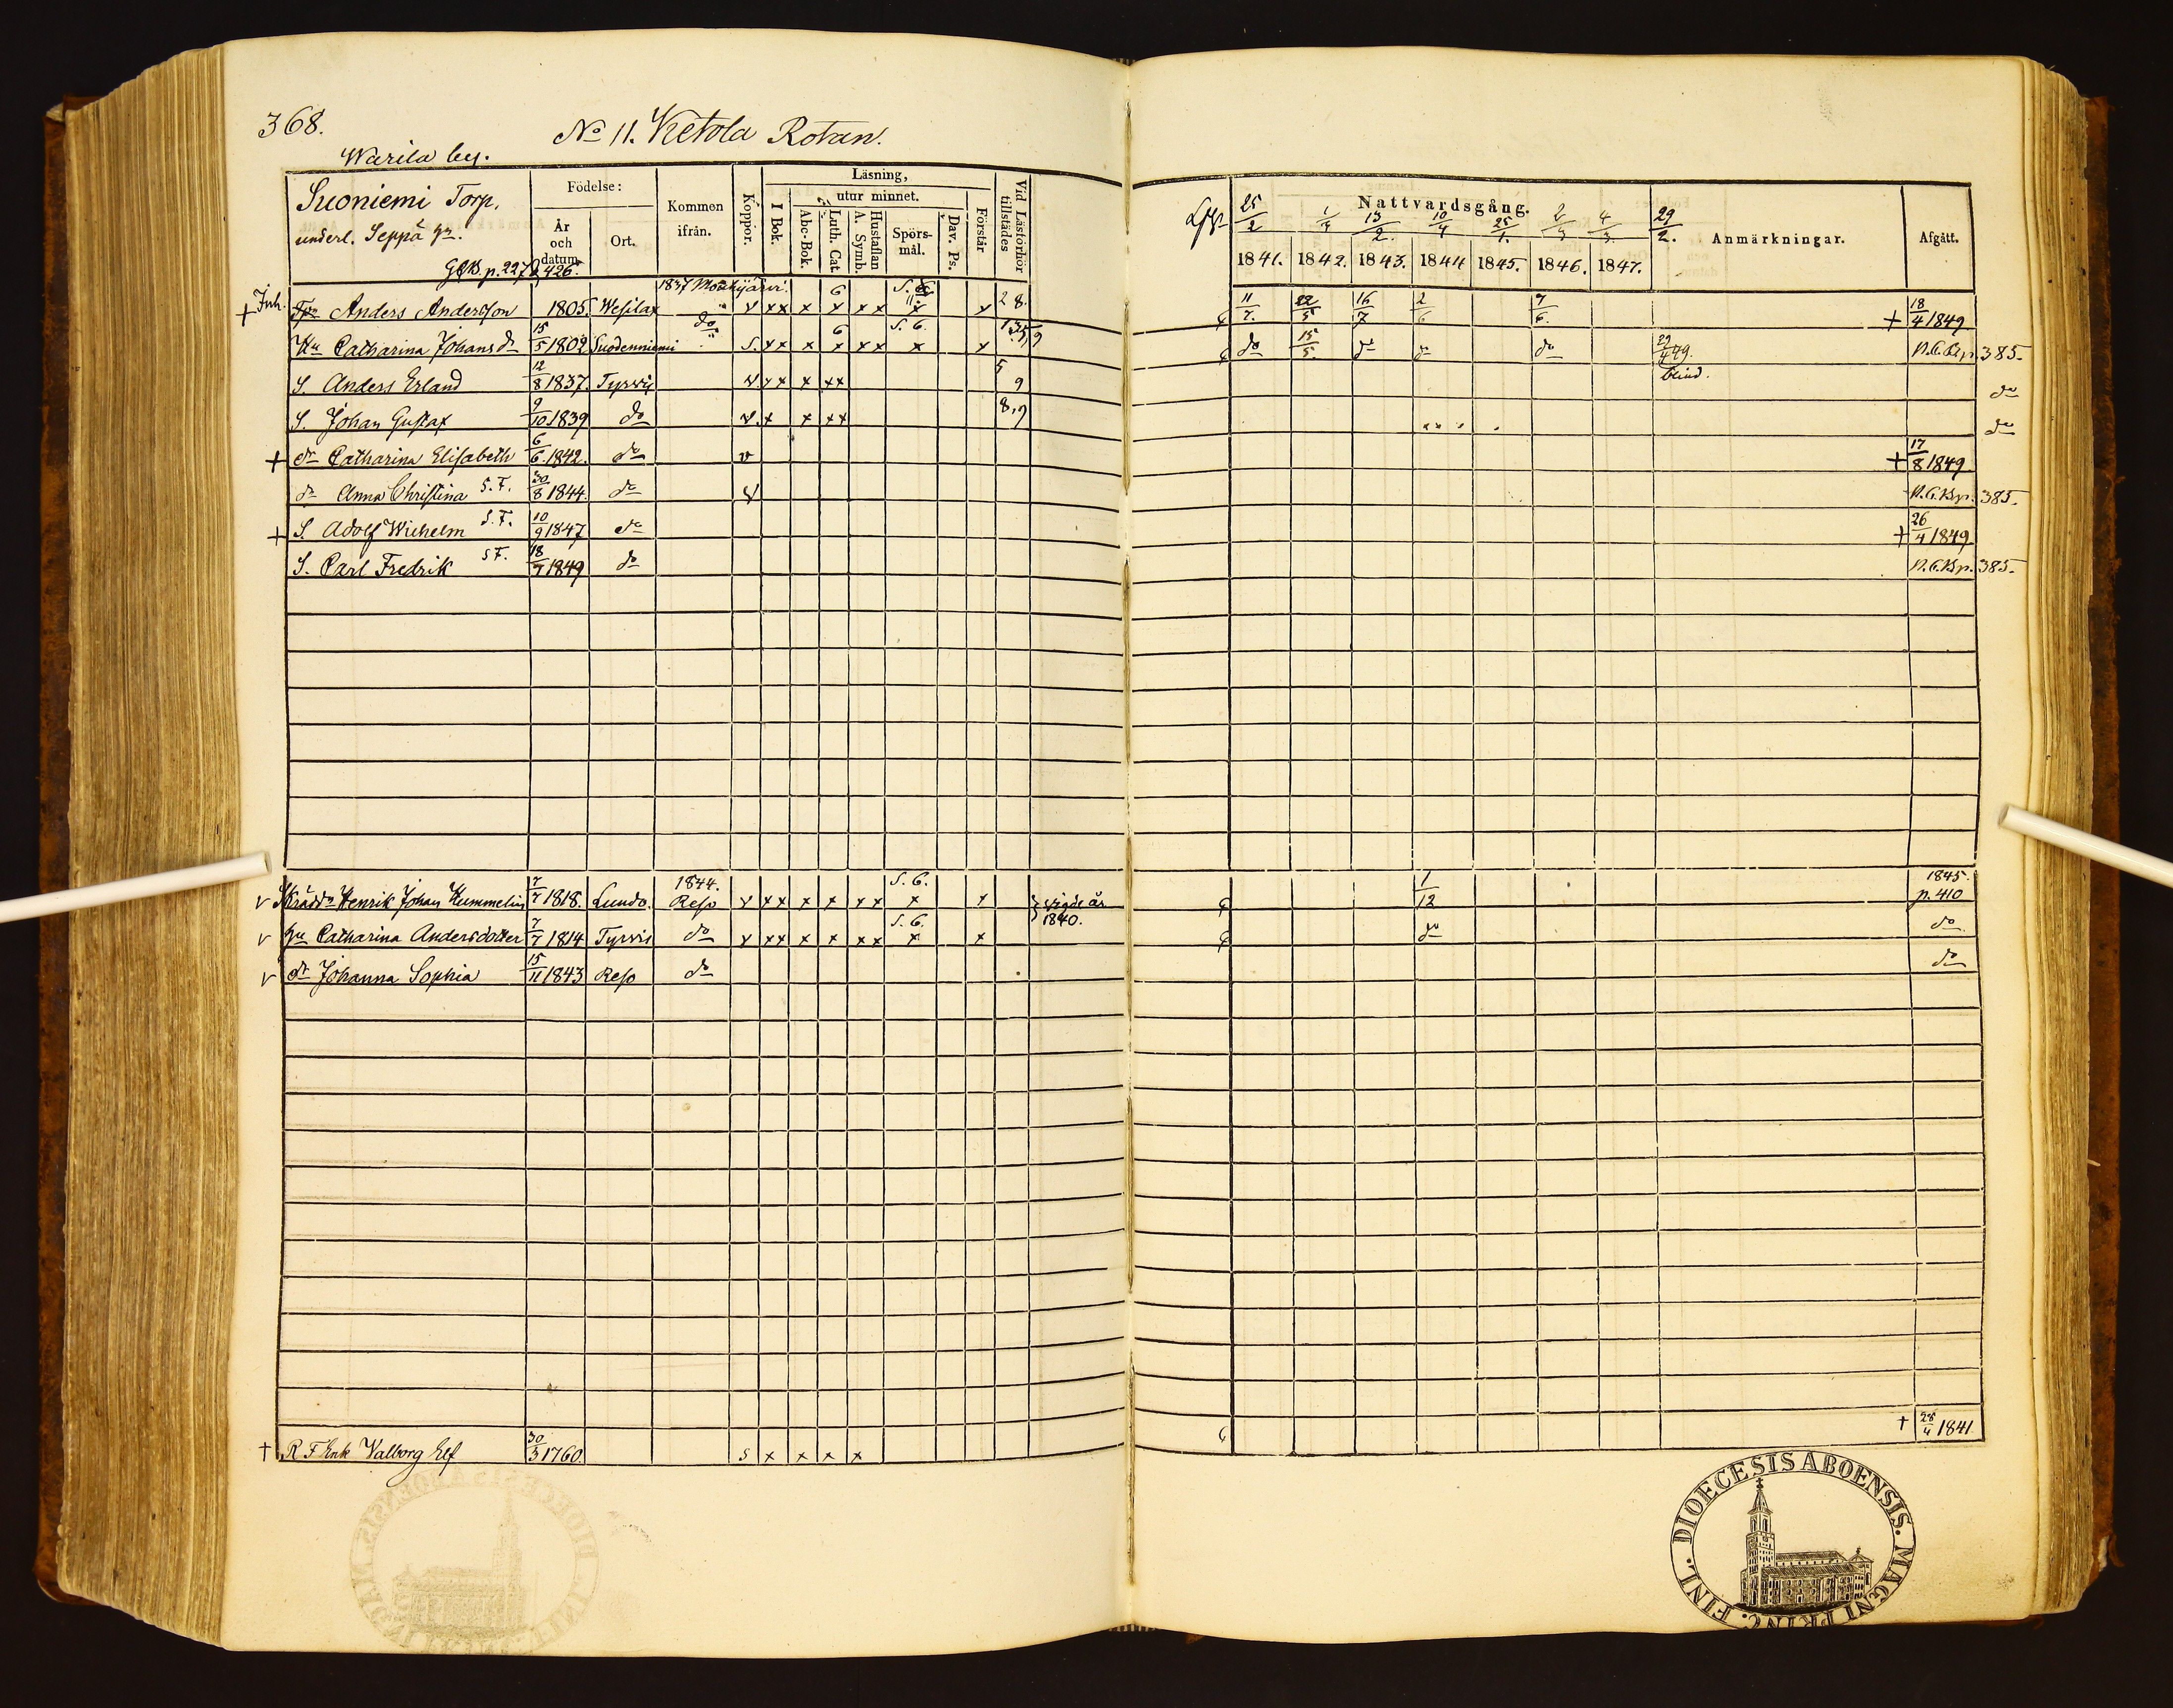 368.
No 11. Ketola Rotan.
Warila by.
Suoniemi Torp.
underl. Seppä
G.K.B. p. 227, 426.
Födelse:
År och datum
Ort.
Kommen ifrån.
Koppor.
Läsning,
I Bok.
utur minnet.
Abc-Bok.
Luth. Cat.
Hustaflan A. Symb.
Spörs-mål.
Dav. Ps.
Förstår
Vid Läsförhör tillstädes
Nattvardsgång.
25/2 1/4 13/2. 10/4 25/1. 2/3 4/3. 29/2.
1841. 1842. 1843. 1844 1845. 1846. 1847.
Anmärkningar.
Afgått.
+ Inh. Anders Andersson 1805. Wesilax 1837 Mouhijärvi. v xx x 6 x x x x x 2 8. 11/7. 22/5 16/7 2/6 7/6. + 18/4 1849
Hu Catharina Johans dr 15/5 1802 Suodenniemi do S. xx x 6 x x x S. 6. x x do 15/5. do do do 29/4 49. N.C.B.p. 385.
S. Anders Erland 12/8 1837 Tyrvis v xx x xx 5 9 blind. do
S. Johan Gustaf 9/10 1839 do v x x xx 8,9 do
+ dr Catharina Elisabeth 6/6. 1842. do v + 17/8 1849
dr Anna Christina S.F. 30/8 1844. do v N.C.B.p. 385.
+ S. Adolf Wilhelm S.F. 10/9 1847 do + 26/4 1849
S. Carl Fredrik S.F. 18/7 1849 do N.C.B.p. 385.
v Skrädd. Henrik Johan Hummelin 7/7 1818. Lundo. 1844. Reso v xx x x xx S. 6. x x } vigde år 1840. 1/12 1845. p. 410
v Hu Catharina Andersdotter 7/7 1814 Tyrvis do v xx x x xx S. 6. x x do do
v dr Johanna Sophia 15/11 1843 Reso do do
† R F Enk Valborg Elf 30/3 1760 S x x x x † 28/4 1841
DIOECESIS ABOENSIS. MAGNI PRINC. FINL.